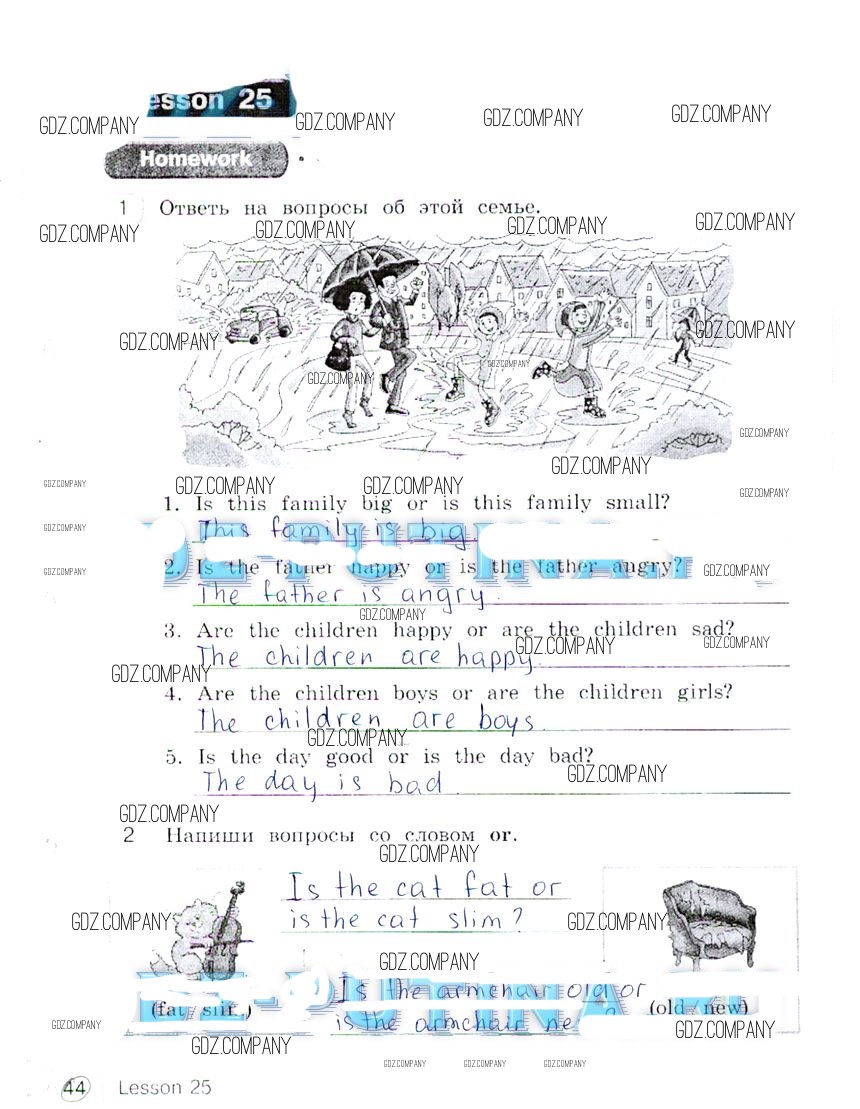 esson 25
GDZ.COMPANY GDZ.COMPANY GDZ.COMPANY GDZ.COMPANY
Homework
1 Ответь на вопросы об этой семье.
GDZ.COMPANY GDZ.COMPANY GDZ.COMPANY GDZ.COMPANY
GDZ.COMPANY GDZ.COMPANY
GDZ.COMPANY GDZ.COMPANY
GDZ.COMPANY
GDZ.COMPANY
GDZ.COMPANY GDZ.COMPANY GDZ.COMPANY GDZ.COMPANY
1. Is this family big or is this family small?
GDZ.COMPANY This family is big.
2. Is the father happy or is the father angry?
GDZ.COMPANY GDZ.COMPANY
The father is angry.
GDZ.COMPANY
3. Are the children happy or are the children sad?
GDZ.COMPANY GDZ.COMPANY
The children are happy.
GDZ.COMPANY
4. Are the children boys or are the children girls?
The children are boys.
GDZ.COMPANY
5. Is the day good or is the day bad?
GDZ.COMPANY
The day is bad.
GDZ.COMPANY
2 Напиши вопросы со словом or.
GDZ.COMPANY
Is the cat fat or
is the cat slim?
GDZ.COMPANY GDZ.COMPANY
GDZ.COMPANY
Is the armchair old or
(fat / (old / new)
is the armchair
GDZ.COMPANY GDZ.COMPANY
GDZ.COMPANY
GDZ.COMPANY GDZ.COMPANY GDZ.COMPANY
44 Lesson 25